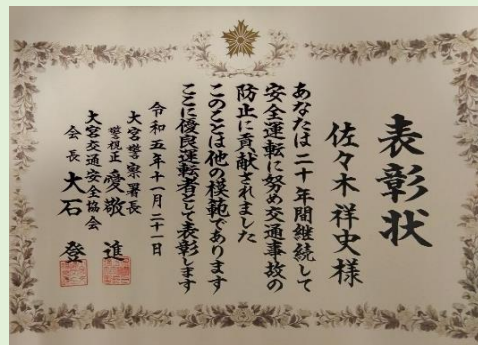 表彰状
佐々木 祥史様
あなたは二十年間継続して
安全運転に努め交通事故の
防止に貢献されました
このことは他の模範であります
ここに優良運転者として表彰します
令和五年十一月二十一日
大宮警察署長
警視正 愛敬 進
大宮交通安全協会
会長 大石 登